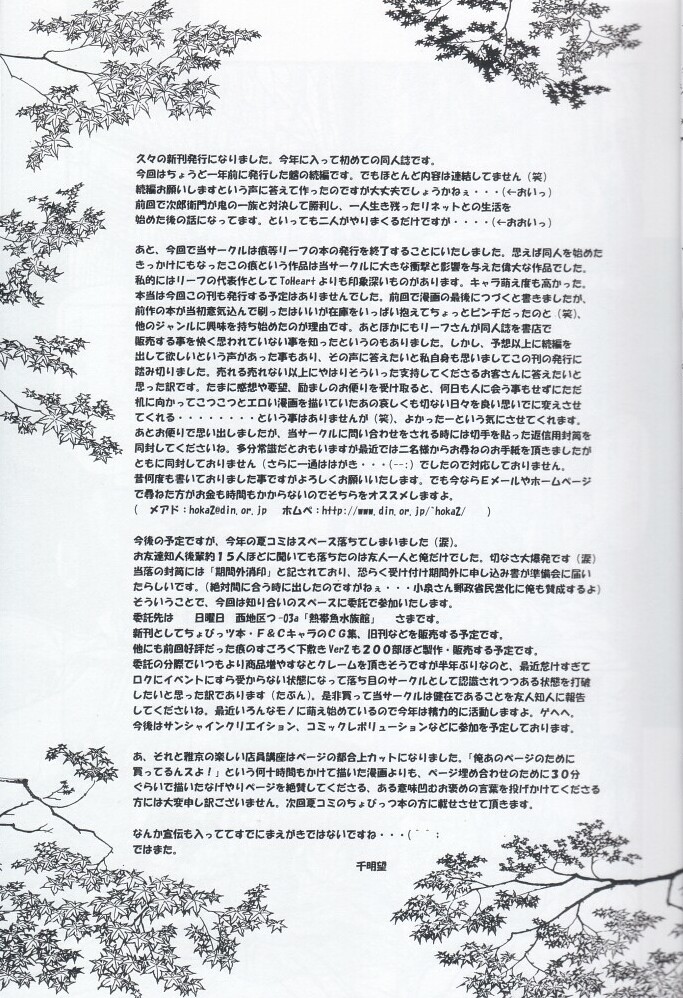 久々の新刊発行になりました。今年に入って初めての同人誌です。
今回はちょうど一年前に発行した鱈の続編です。でもほとんど内容は連結してません（笑）
続編お願いしますという声に答えて作ったのですが大丈夫でしょうかねぇ・・・（←おいっ）
前回で次郎衛門が鬼の一族と対決して勝利し、一人生き残ったリネットとの生活を
始めた後の話になってます。といっても二人がやりまくるだけですが・・・・（←おおいっ）
あと、今回で当サークルは痕等リーフの本の発行を終了することにいたしました。思えば同人を始めた
きっかけにもなったこの痕という作品は当サークルに大きな衝撃と影響を与えた偉大な作品でした。
私的にはリーフの代表作としてToHeartよりも印象深いものがあります。キャラ萌え度も高かった。
本当は今回この刊も発行する予定はありませんでした。前回で漫画の最後につづくと書きましたが、
前作の本が当初意気込んで刷ったはいいが在庫をいっぱい抱えてちょっとピンチだったのと（笑）、
他のジャンルに興味を持ち始めたのが理由です。あとほかにもリーフさんが同人誌を書店で
販売する事を快く思われていない事を知ったというのもありました。しかし、予想以上に続編を
出して欲しいという声があった事もあり、その声に答えたいと私自身も思いましてこの刊の発行に
踏み切りました。売れる売れない以上にやはりそういった支持してくださるお客さんに答えたいと
思った訳です。たまに感想や要望、励ましのお便りを受け取ると、何日も人に会う事もせずにただ
机に向かってこつこつとエロい漫画を描いていたあの哀しくも切ない日々を良い思いでに変えさせ
てくれる・・・・・・・・という事はありませんが（笑）、よかったーという気にさせてくれます。
あとお便りで思い出しましたが、当サークルに問い合わせをされる時には切手を貼った返信用封筒を
同封してくださいね。多分常識だとおもいますが最近では二名様からお尋ねのお手紙を頂きましたが
ともに同封しておりません（さらに一通ははがき・・・(--;）でしたので対応しておりません。
昔何度も書いておりました事ですがよろしくお願いいたします。でも今ならＥメールやホームページ
で尋ねた方がお金も時間もかからないのでそちらをオススメしますよ。
（　メアド：hoka2@din.or.jp　ホムペ：http://www.din.or.jp/~hoka2/　）
今後の予定ですが、今年の夏コミはスペース落ちてしまいました（涙）。
お友達知人後輩約１５人ほどに聞いても落ちたのは友人一人と俺だけでした。切なさ大爆発です（涙）
当落の封筒には「期間外消印」と記されており、恐らく受け付け期間外に申し込み書が準備会に届い
たらしいです。（絶対間に合う時に出したのですがねぇ・・・小泉さん郵政省民営化に俺も賛成するよ）
そういうことで、今回は知り合いのスペースに委託で参加いたします。
委託先は　　日曜日　西地区つ-03a「熱帯魚水族館」　さまです。
新刊としてちょびっツ本・Ｆ＆ＣキャラのＣＧ集、旧刊などを販売する予定です。
他にも前回好評だった痕のすごろく下敷きVer2も２００部ほど製作・販売する予定です。
委託の分際でいつもより商品増やすなとクレームを頂きそうですが半年ぶりなのと、最近怠けすぎて
ロクにイベントにすら受からない状態になって落ち目のサークルとして認識されつつある状態を打破
したいと思った訳であります（たぶん）。是非買って当サークルは健在であることを友人知人に報告
してくださいね。最近いろんなモノに萌え始めているので今年は精力的に活動しますよ。ゲヘヘ。
今後はサンシャインクリエイション、コミックレボリューションなどに参加を予定しております。
あ、それと雅京の楽しい店員講座はページの都合上カットになりました。「俺あのページのために
買ってるんスよ！」という何十時間もかけて描いた漫画よりも、ページ埋め合わせのために３０分
ぐらいで描いたなげやりページを絶賛してくださる、ある意味凹むお褒めの言葉を投げかけてくださる
方には大変申し訳ございません。次回夏コミのちょびっツ本の方に載せさせて頂きます。
なんか宣伝も入っててすでにまえがきではないですね・・・(＾＾；
ではまた。
千明望